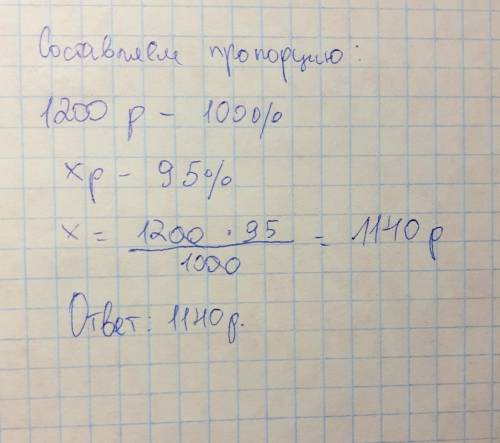 Составляем пропорцию:
1200 р - 100%
xр - 95%
x = 1200 · 95 / 1000 = 1140 р
Ответ: 1140р.